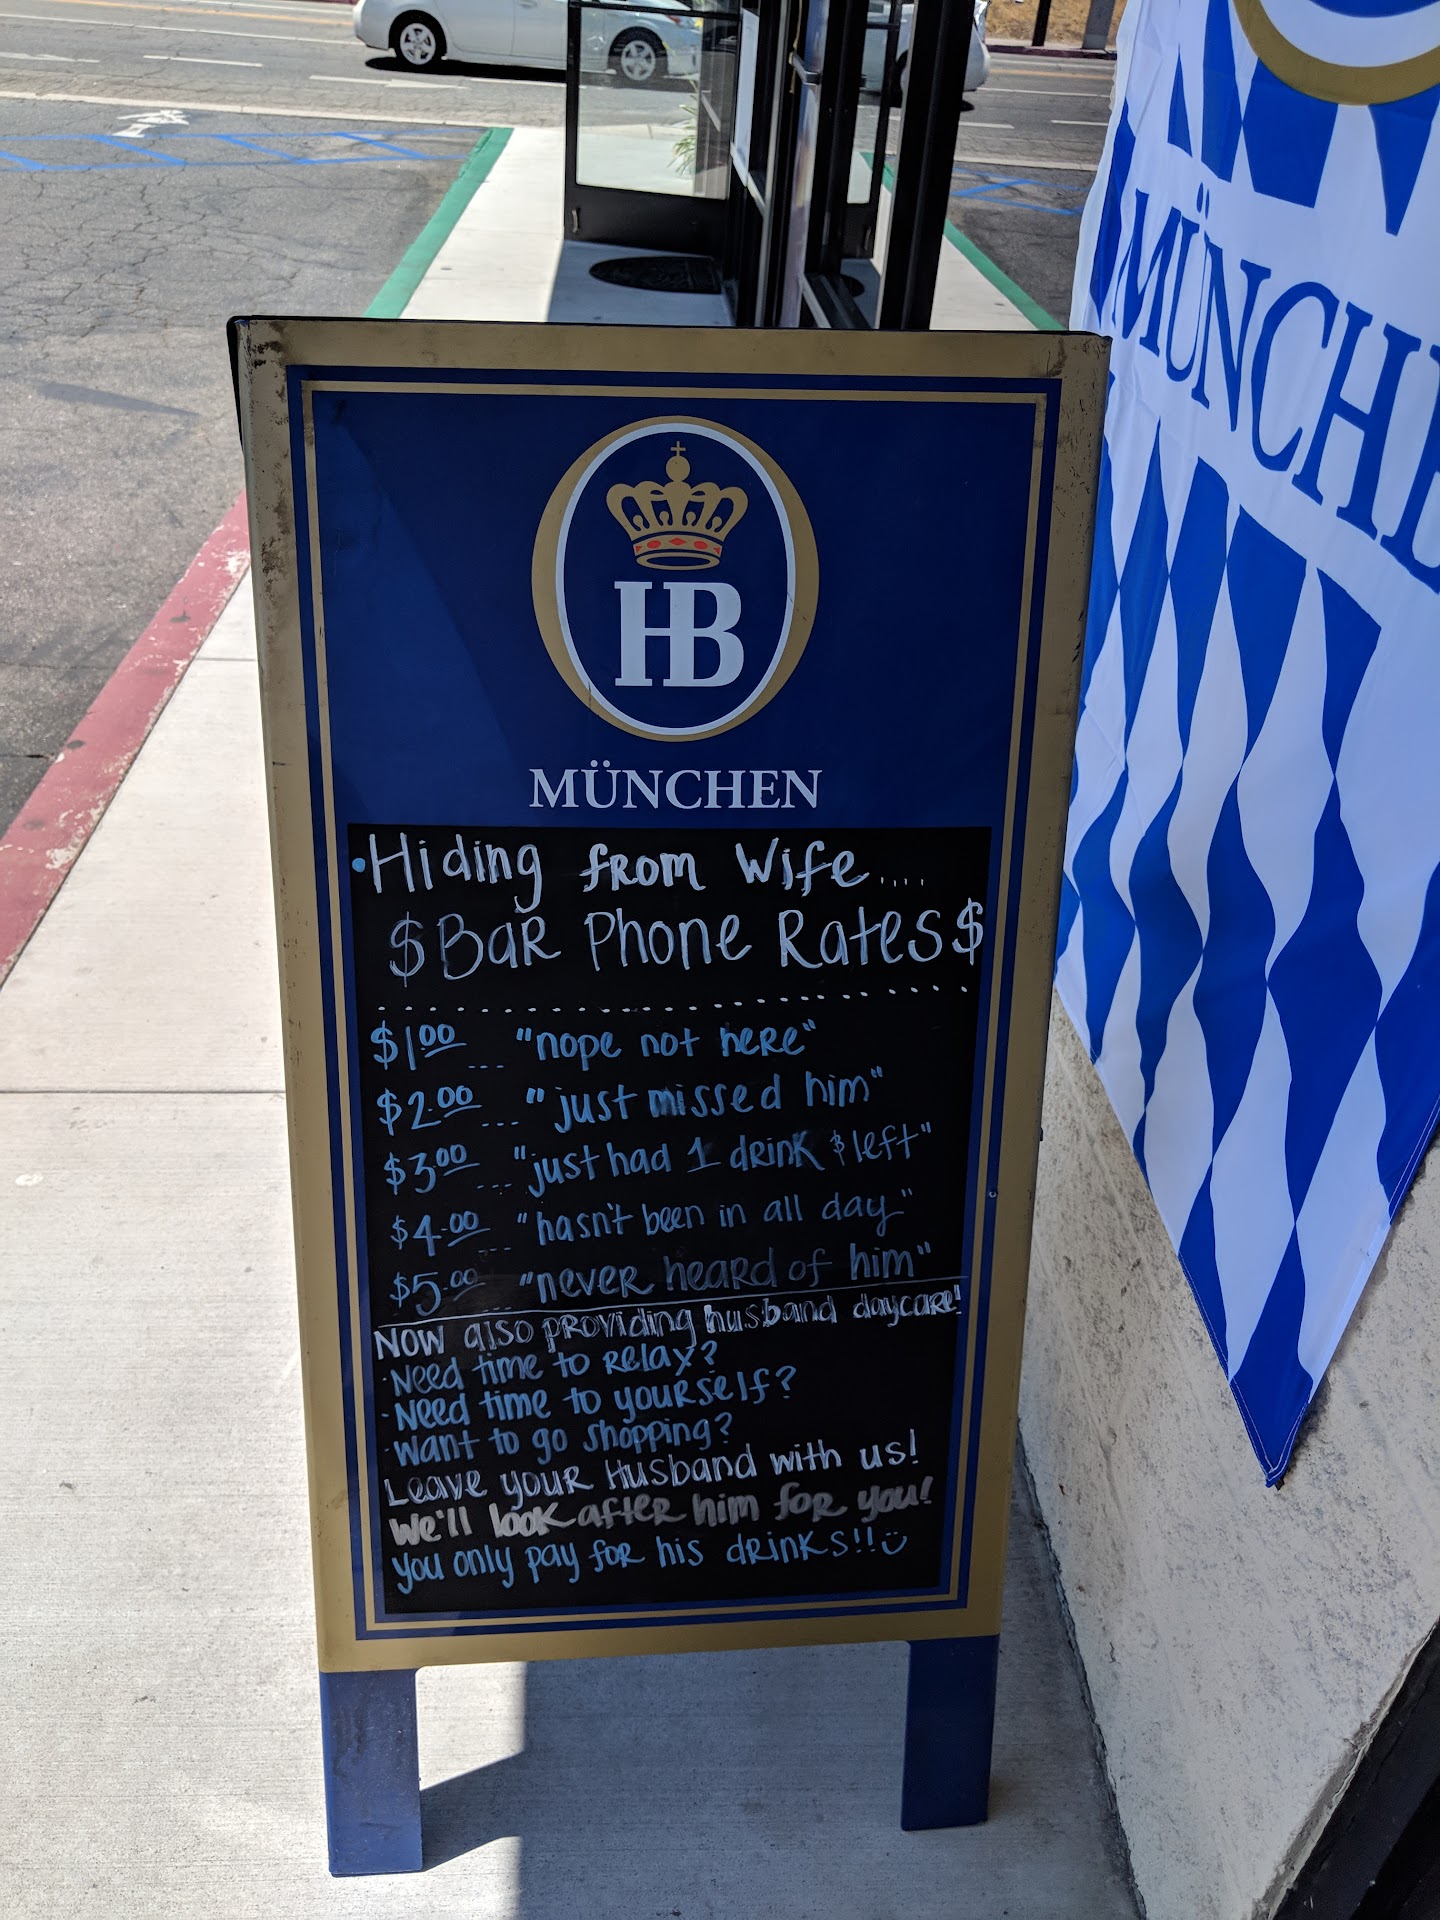 HB
MÜNCHEN
•Hiding from Wife....
$Bar Phone Rates$
$1.00 ... "nope not here"
$2.00 ... "just missed him"
$3.00 ... "just had 1 drink & left"
$4.00 ... "hasn't been in all day"
$5.00 ... "never heard of him"
Now also providing husband daycare!
·Need time to relax?
·Need time to yourself?
·Want to go shopping?
Leave your Husband with us!
We'll look after him for you!
you only pay for his drinks!!☺
MÜNCHE